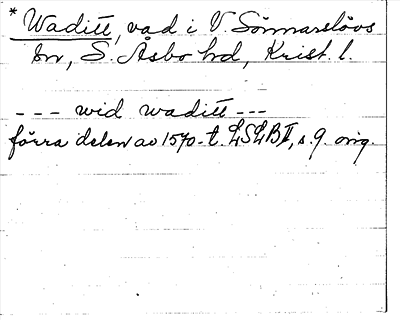 * Waditt, vad i V. Sönnarslövs
sn, S. Åsbo hd, Krist. l.
--- wid waditt ---
förra delen av 1570-t. LSLB II, s. 9. orig.